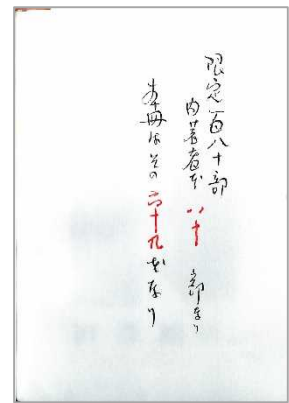 限定百八十部
内著者本 八十 部なり
本冊はその六十九番なり